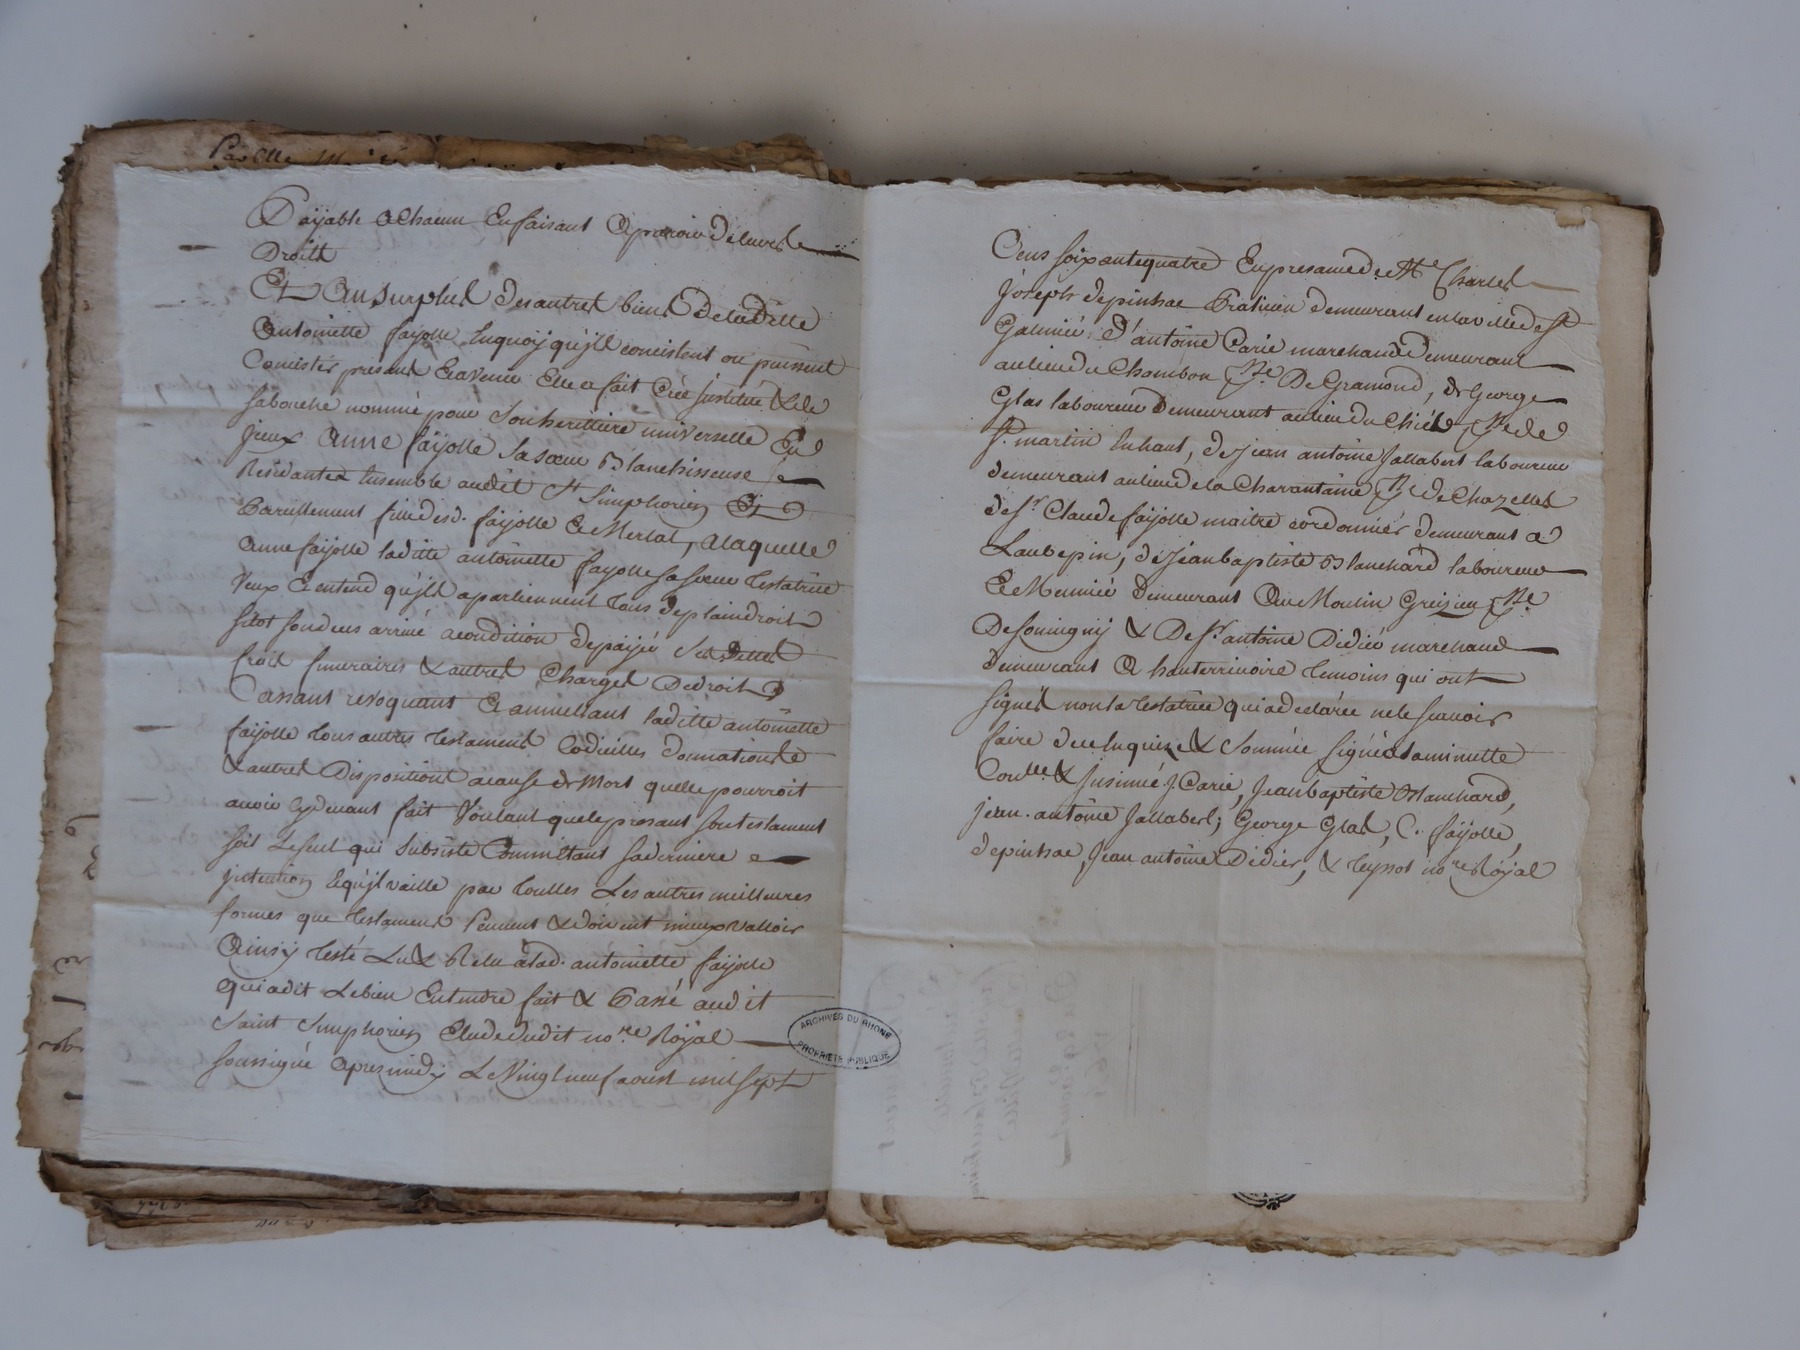 Payable a Chacun En faisant Aparoir de leurs
Droits
Et Au Surplus des autres biens De laditte
Antoinette fayolle En quoy qu'ils concistent ou puissent
Concister présent Et avenir Elle a fait Créé Justitué & de
sa bouche nommé pour Son heritiere universelle En
Jceux Anne fayolle Sa soeur Blanchisseuse
Residantes Ensemble audit St Simphorien Et
Pareillement fille desd. fayolle Et Merlat, a laquelle
Anne fayolle laditte antoinette fayolle sa soeur testatrice
Veux Et entend qu'ils apartiennent tous de plain droit
sitot son deces arrivé a condition de payér Ses Dettes
frais funeraires & autres Charges De droit
Cassant revoquant Et annullant laditte antoinette
fayolle tous autres testaments Codicilles donnations
& autres Dispositions a cause de Mort quelle pourroit
avoir Cy devant fait Voulant que le present son testament
soit Le seul qui Subsiste Comme Etant sa derniere
jntention Et qu'jl vaille par touttes Les autres meilleures
formes que testaments Peuvent & doivent mieux valloir
Ainsy testé Lu & Relu a lad. antoinette fayolle
qui a dit Le bien Entendre fait & Passé audit
Saint Simphorien Etude dudit nore Royal
soussigné Apres midy Le Vingt neuf aoust mil sept
Cens soixante quatre En presance de Me Charles
Joseph depinhac Praticien demeurant en la ville de St
Galmiér D'antoine Carié marchand Demeurant
au lieu du Chambon Psse De Gramond, de George
Glas laboureur Demeurant au lieu du Chiés Psse de
St. martin En haut, de Jean antoine Jallabert laboureur
demeurant au lieu de la Charantaine Psse de Chazelles
de Sr Claude fayolle maitre cordonniér demeurant a
Laubepin, de Jean baptiste Blanchard laboureur
Et Meunié Demeurant Au Moulin Greizieu Psse
De Soucugny & De Sr antoine Didiér marchand
demeurant A hauterivoire temoins qui ont
signés non la testatrice qui a declarée ne le scavoir
faire de ce Enquize & Sommée Signé a la minutte
Conlle & jnsinué J. Carié, Jean baptiste Blanchard,
jean. antoine Jallabert, George Glas, C. fayolle,
depinhac, Jean antoine Didier, & teyssot nore Royal
ARCHIVES DU RHONE
PROPRIETE PUBLIQUE